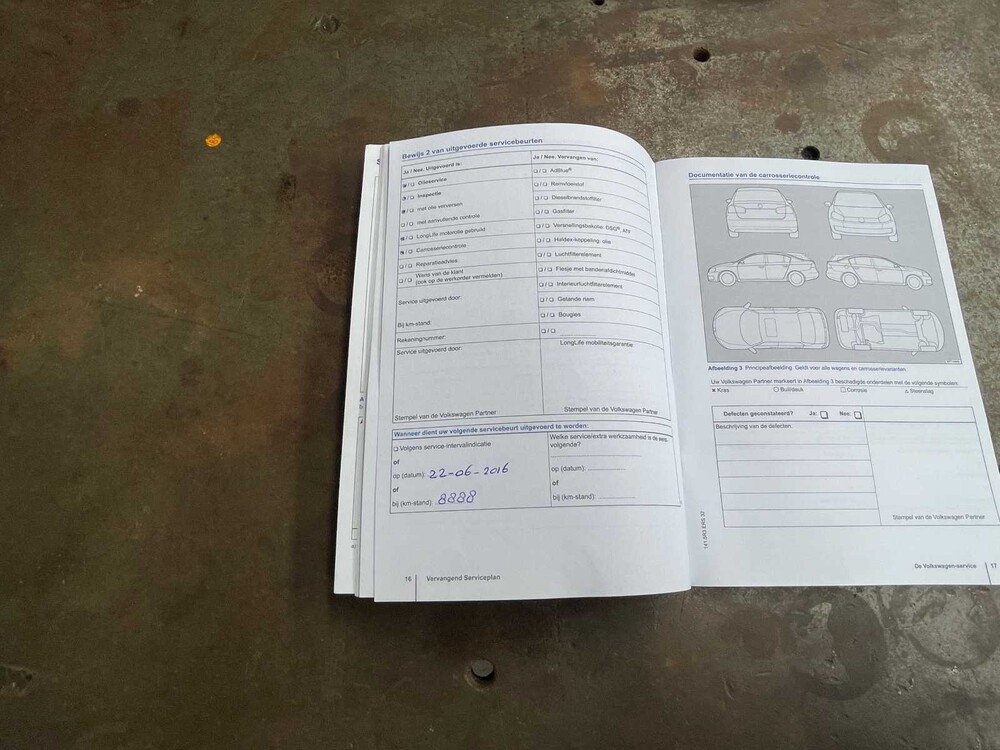 Bewijs 2 van uitgevoerde servicebeurten
Ja / Nee. Uitgevoerd is:
Olieservice
Inspectie
met olie verversen
met aanvullende controle
LongLife motorolie gebruikt
Carrosseriecontrole
Reparatieadvies
Wens van de klant
(ook op de werkorder vermelden)
Service uitgevoerd door:
Bij km-stand:
Rekeningnummer:
Service uitgevoerd door:
Stempel van de Volkswagen Partner
Ja / Nee. Vervangen van:
AdBlue®
Remvloeistof
Dieselbrandstoffilter
Gasfilter
Versnellingsbakolie: DSG®, ATF
Haldex-koppeling: olie
Luchtfilterelement
Flesje met bandenafdichtmiddel
Interieurluchtfilterelement
Getande riem
Bougies
LongLife mobiliteitsgarantie
Stempel van de Volkswagen Partner
Wanneer dient uw volgende servicebeurt uitgevoerd te worden:
Volgens service-intervalindicatie
of
op (datum): 22-06-2016
of
bij (km-stand): 8888
Welke service/extra werkzaamheid is de eerst-
volgende?
op (datum):
of
bij (km-stand):
16 Vervangend Serviceplan
Documentatie van de carrosseriecontrole
Afbeelding 3 Principeafbeelding. Geldt voor alle wagens en carrosserievarianten.
Uw Volkswagen Partner markeert in Afbeelding 3 beschadigde onderdelen met de volgende symbolen:
Kras
Buil/deuk
Corrosie
Steenslag
Defecten geconstateerd? Ja: Nee:
Beschrijving van de defecten
Stempel van de Volkswagen Partner
De Volkswagen-service 17